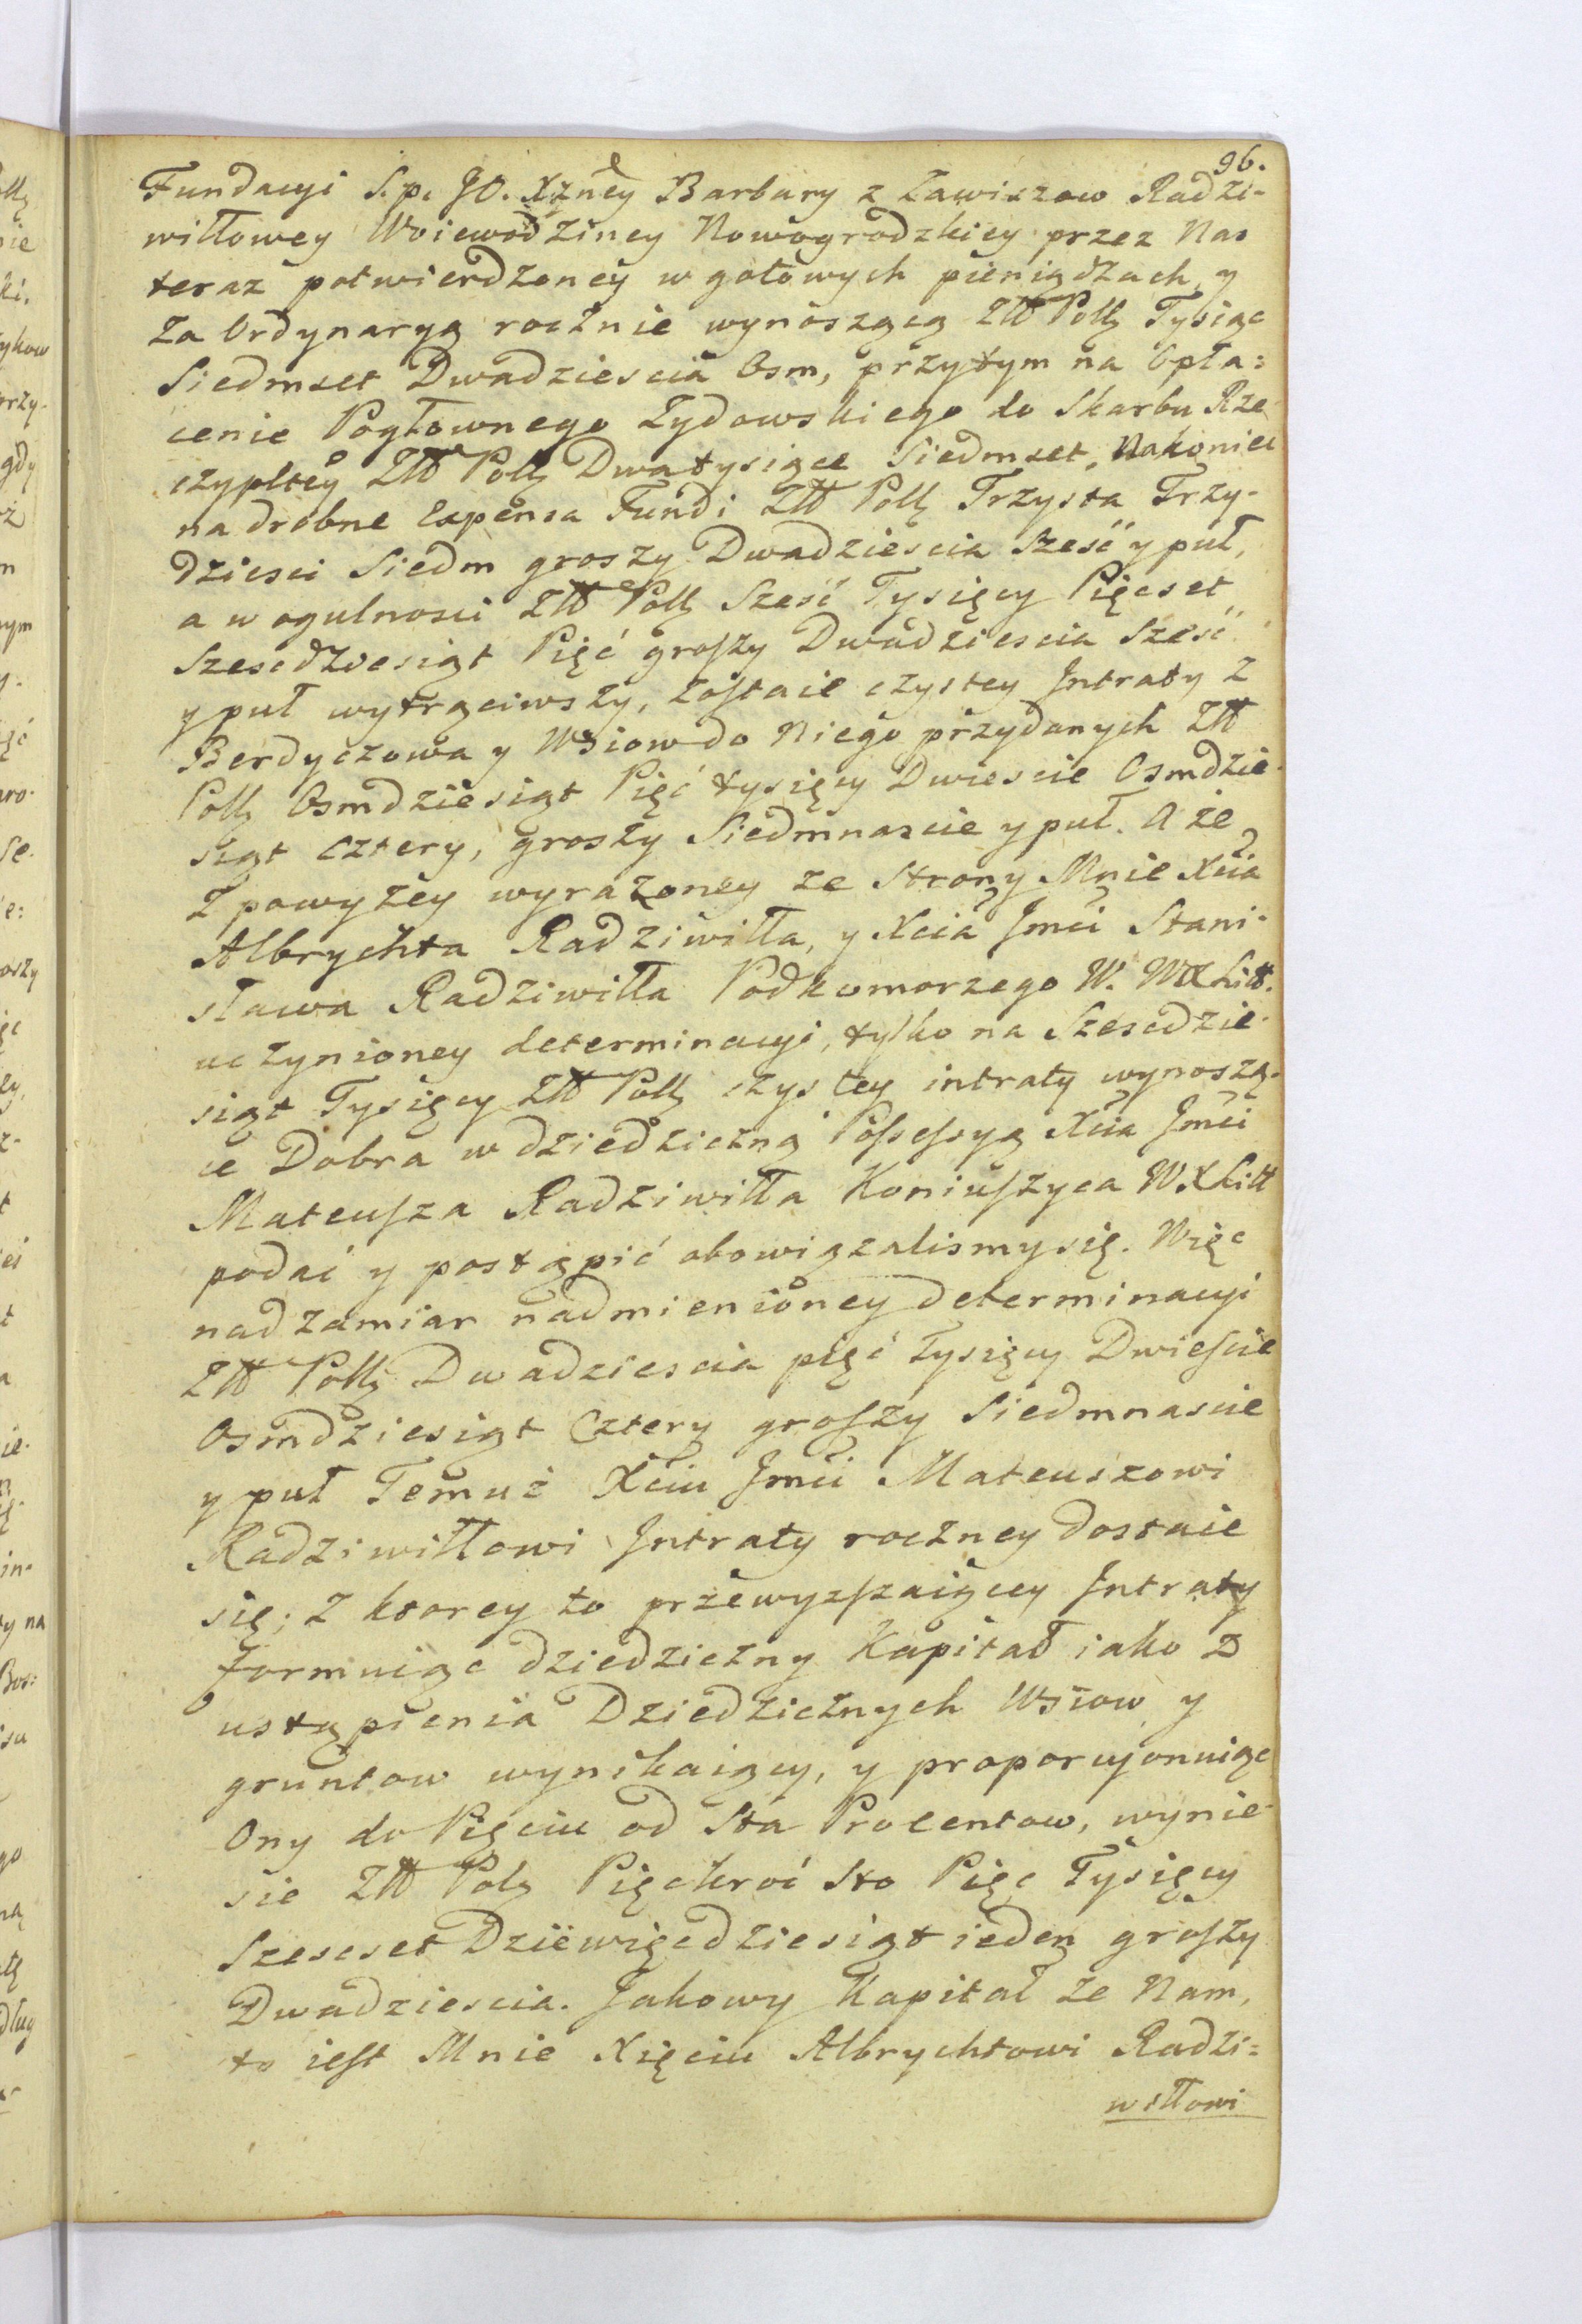 96.
Fundacyi S. p. JO. Xżney Barbary z Zawiszow Radzi-
wiłłowey Woiewodziney Nowogrodzkiey przez Nas
teraz potwierdzoney w gotowych pieniądzach, y
za Ordynaryą rocznie wynoszącą Złł Pollḡ Tysiąc
Siedmset Dwadziescia Osm, przytym na Opła=
cenie Pogłownego Zydowskiego do Skarbu Rze
czypltey Złł Pollḡ Dwatysiące Siedmset, Nakoniec
na drobne Expensa Fundi Złł Pollḡ Trzysta Trzy-
dziesci Siedm groszy Dwadziescia Sześć y puł,
a w ogulnosci Złł Pollḡ Sześć Tysięcy Pięcset
Szescdziesiąt Pięć groszy Dwadziescia Sześć
y puł wytrąciwszy, zostaie czystey Jntraty z
Berdyczowa y Wsiow do Niego przydanych Złł
Pollḡ Osmdziesiąt Pięć tysięcy Dwiescie Osmdzie-
siąt cztery, groszy Siedmnascie y puł. A że
z powyżey wyrażoney ze strony Mnie Xcia
Albrychta Radziwiłła, y Xcia Jmci Stani-
sława Radziwiłła Podkomorzego W. WXLitt.
uczynioney determinacyi, tylko na Szescdzie-
siąt Tysięcy Złł Pollḡ czystey intraty wynoszą-
ce Dobra w dziedziczną Possessyą Xcia Jmci
Mateusza Radziwiłła Koniuszyca WXLitt
podać y postąpić obowiązalismy się. Więc
nad zamiar nadmienioney determinacyi
Złł Pollḡ Dwadziescia pięć Tysięcy Dwiescie
Osmdziesiąt Cztery groszy Siedmnascie
y puł Temuż Xciu Jmci Mateuszowi
Radziwiłłowi Jntraty roczney dostaie
się; z ktorey to przewyzszaiącey Jntraty
formuiąc dziedziczny Kapitał iako z
ustąpienia Dziedzicznych Wsiow y
gruntow wynikaiący, y proporcyonuiąc
Ony do Pięciu od Sta Procentow, wynie-
sie Złł Polḡ Pięckroć sto Pięc Tysięcy
Szescset Dziewięcdziesiąt ieden groszy
Dwadziescia. Jakowy Kapitał że Nam,
to iest Mnie Xięciu Albrychtowi Radzi=
wiłłowi